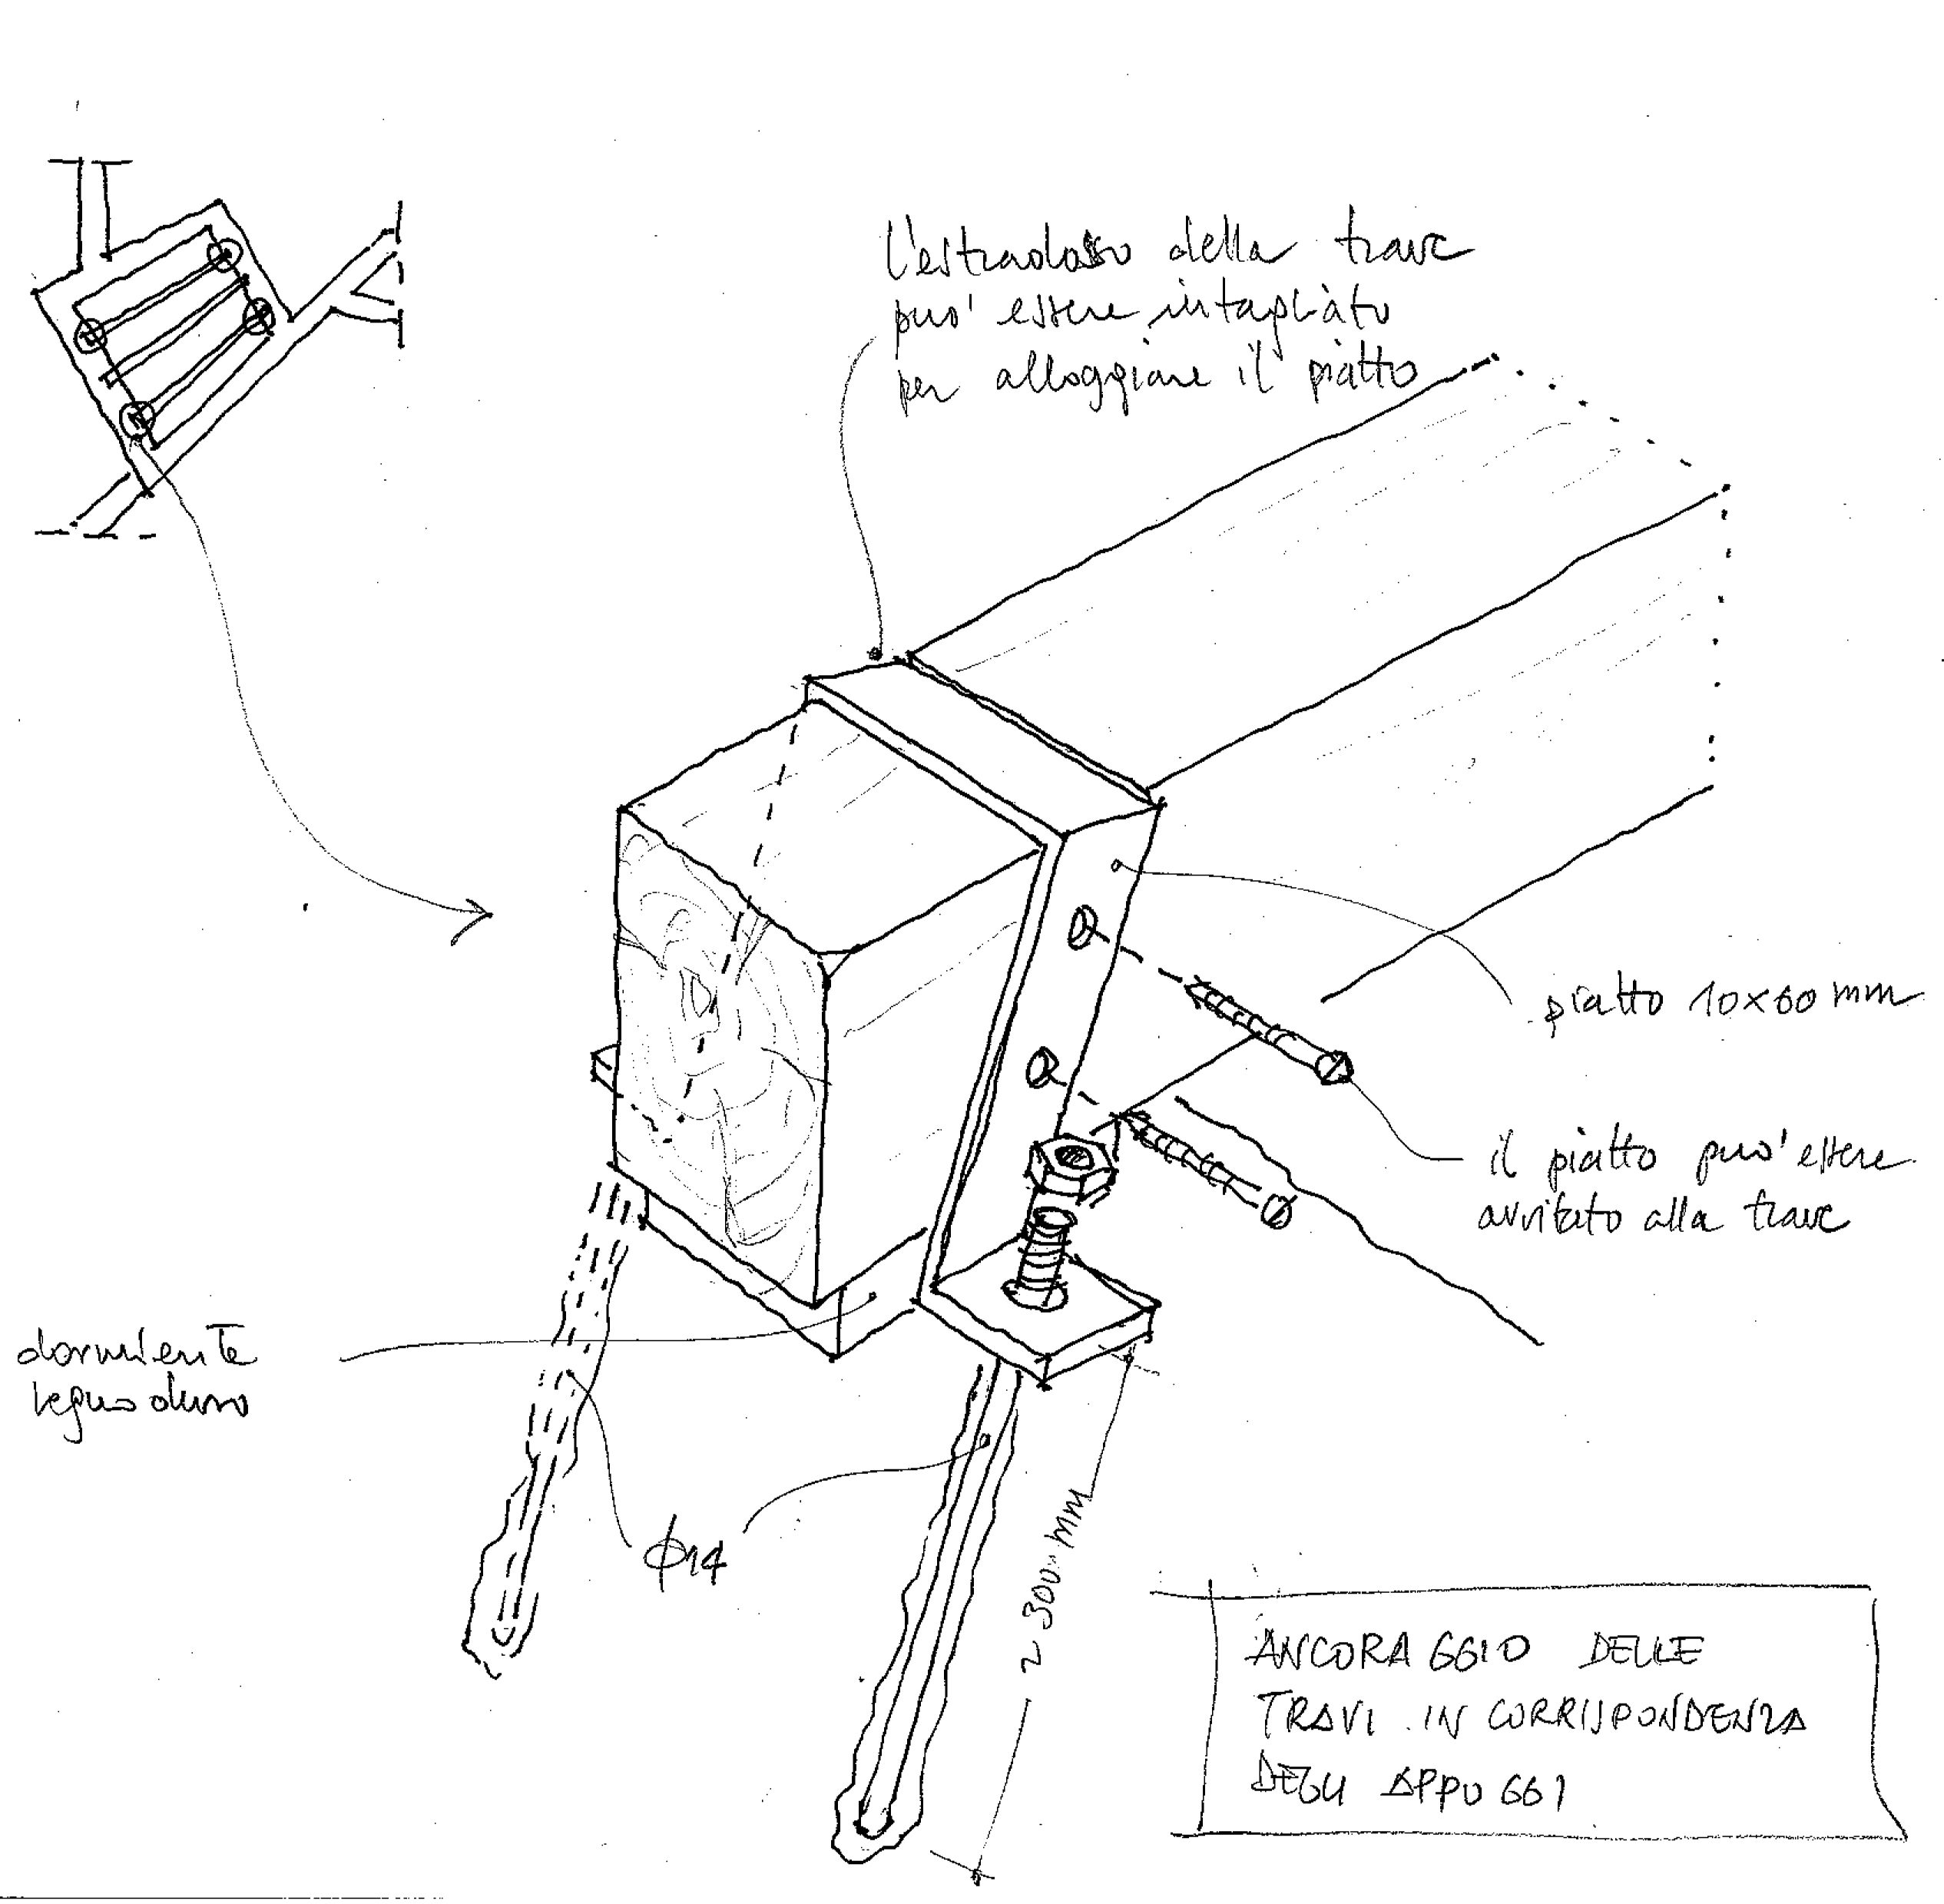 l'estradosso della trave
puo' essere intagliato
per alloggiare il piatto
piatto 10x60mm
il piatto puo' essere
avvitato alla trave
dormiente
legno duro
ϕ14
300 mm
ANCORAGGIO DELLE
TRAVI IN CORRISPONDENZA
DEGLI APPOGGI